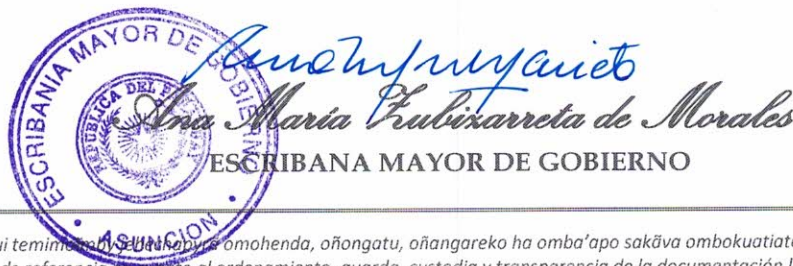 ESCRIBANIA MAYOR DE GOBIERNO
REPUBLICA DEL
ASUNCION
Ana María Zubizarreta de Morales
ESCRIBANA MAYOR DE GOBIERNO
omohenda, oñongatu, oñangareko ha omba'apo sakãva ombokuatiat
al ordenamiento, guarda, custodia y transparencia de la documentación